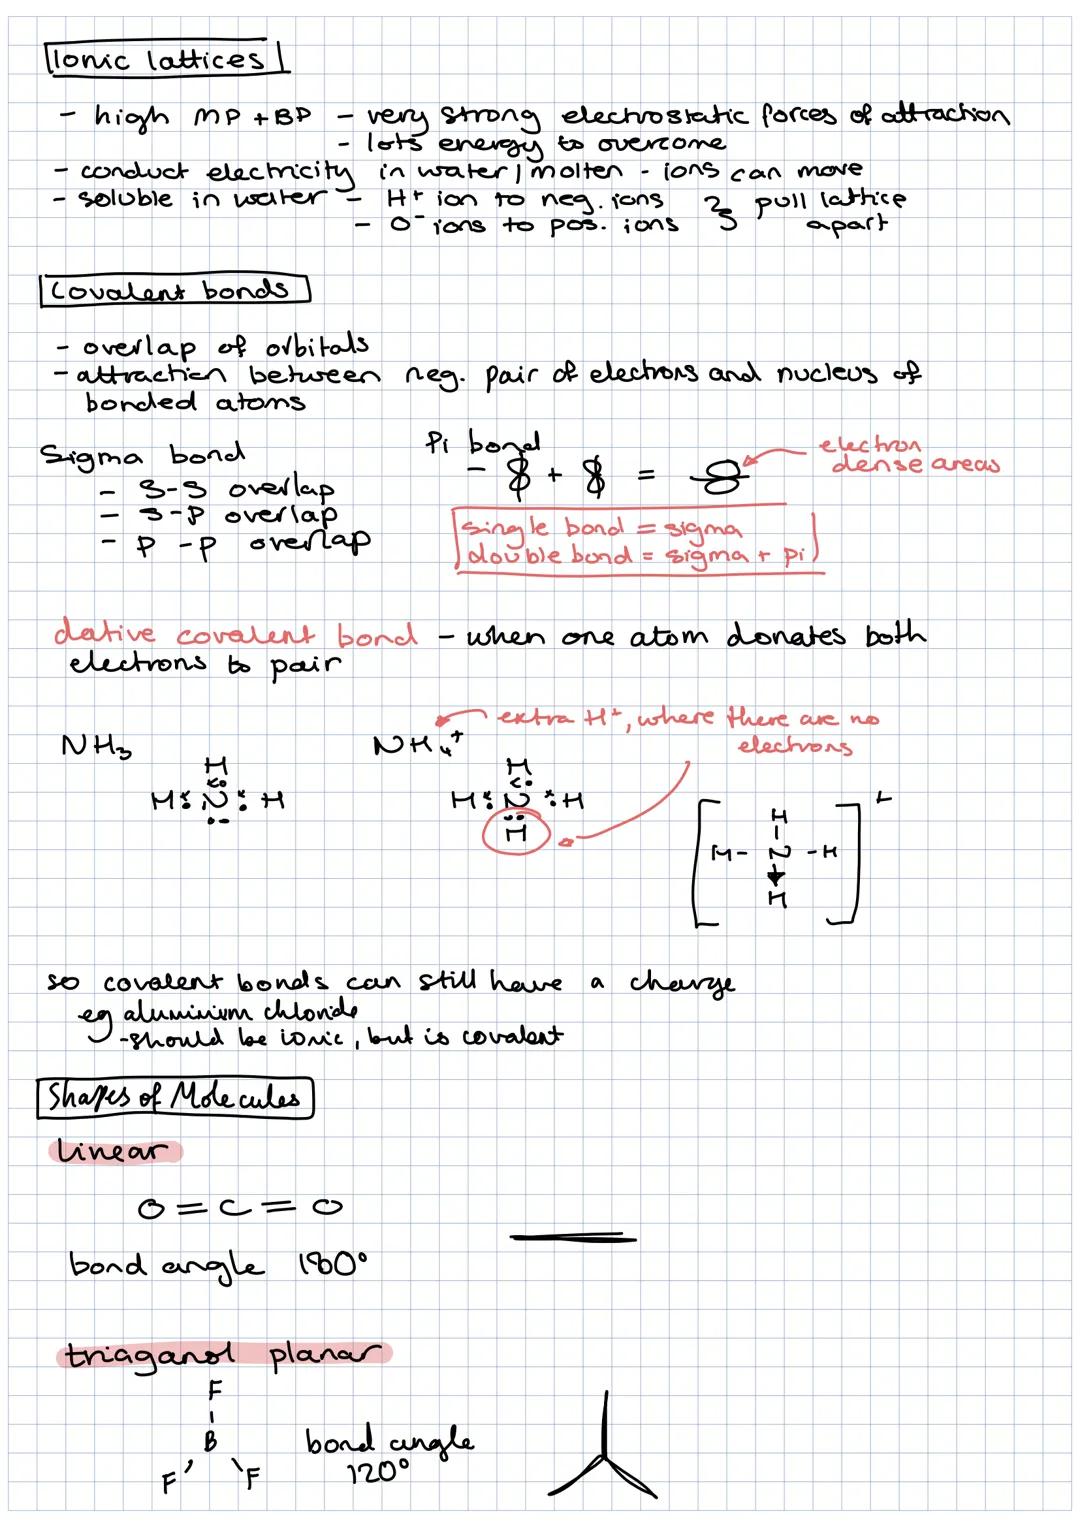 Ionic lattices
- high MP + BP - very strong electrostatic forces of attraction
- lots energy to overcome
- conduct electricity in water / molten - ions can move
- soluble in water - H+ ion to neg. ions } pull lattice
- O- ions to pos. ions apart
Covalent bonds
- overlap of orbitals
- attraction between neg. pair of electrons and nucleus of
bonded atoms
Sigma bond
- s-s overlap
- s-p overlap
- p-p overlap
Pi bond
- + =
electron
dense areas
single bond = sigma
double bond = sigma + pi
dative covalent bond - when one atom donates both
electrons to pair
NH3
H
H N H
NH4+
extra H+, where there are no
electrons
H
H N H
H
H
H - N - H
H
+
so covalent bonds can still have a charge
eg aluminium chloride
- should be ionic, but is covalent
Shapes of Molecules
linear
O = C = O
bond angle 180°
triaganol planar
F
B
F F
bond angle
120°